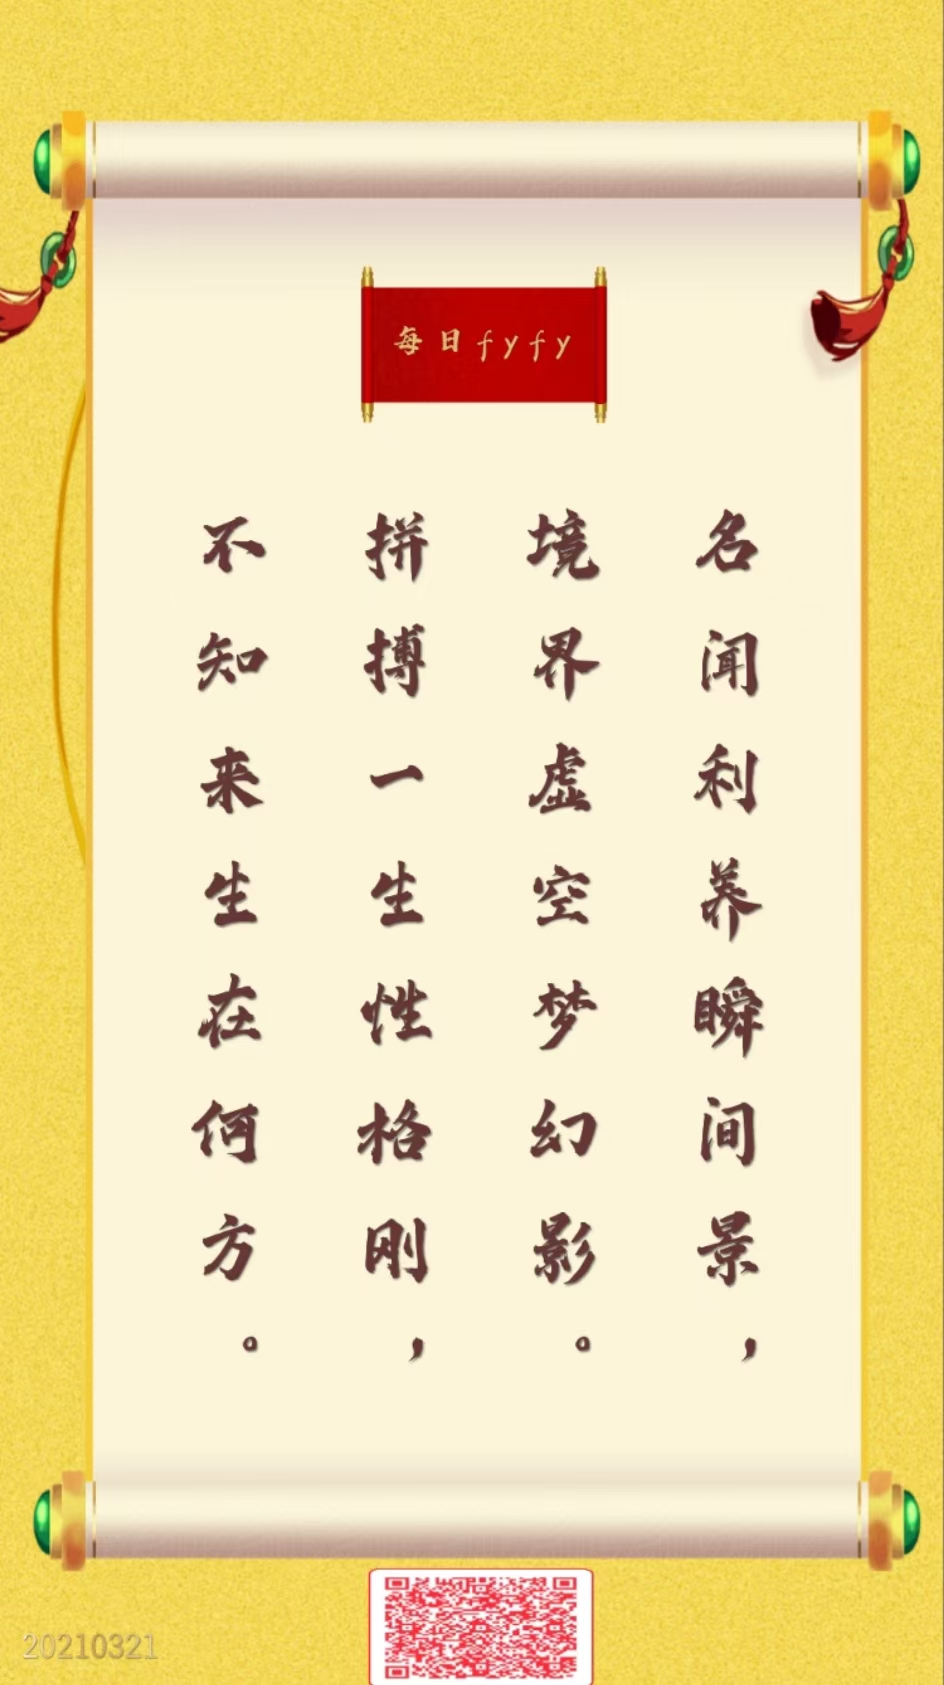 每日fyfy
名闻利养瞬间景，
境界虚空梦幻影。
拼搏一生性格刚，
不知来生在何方。
20210321